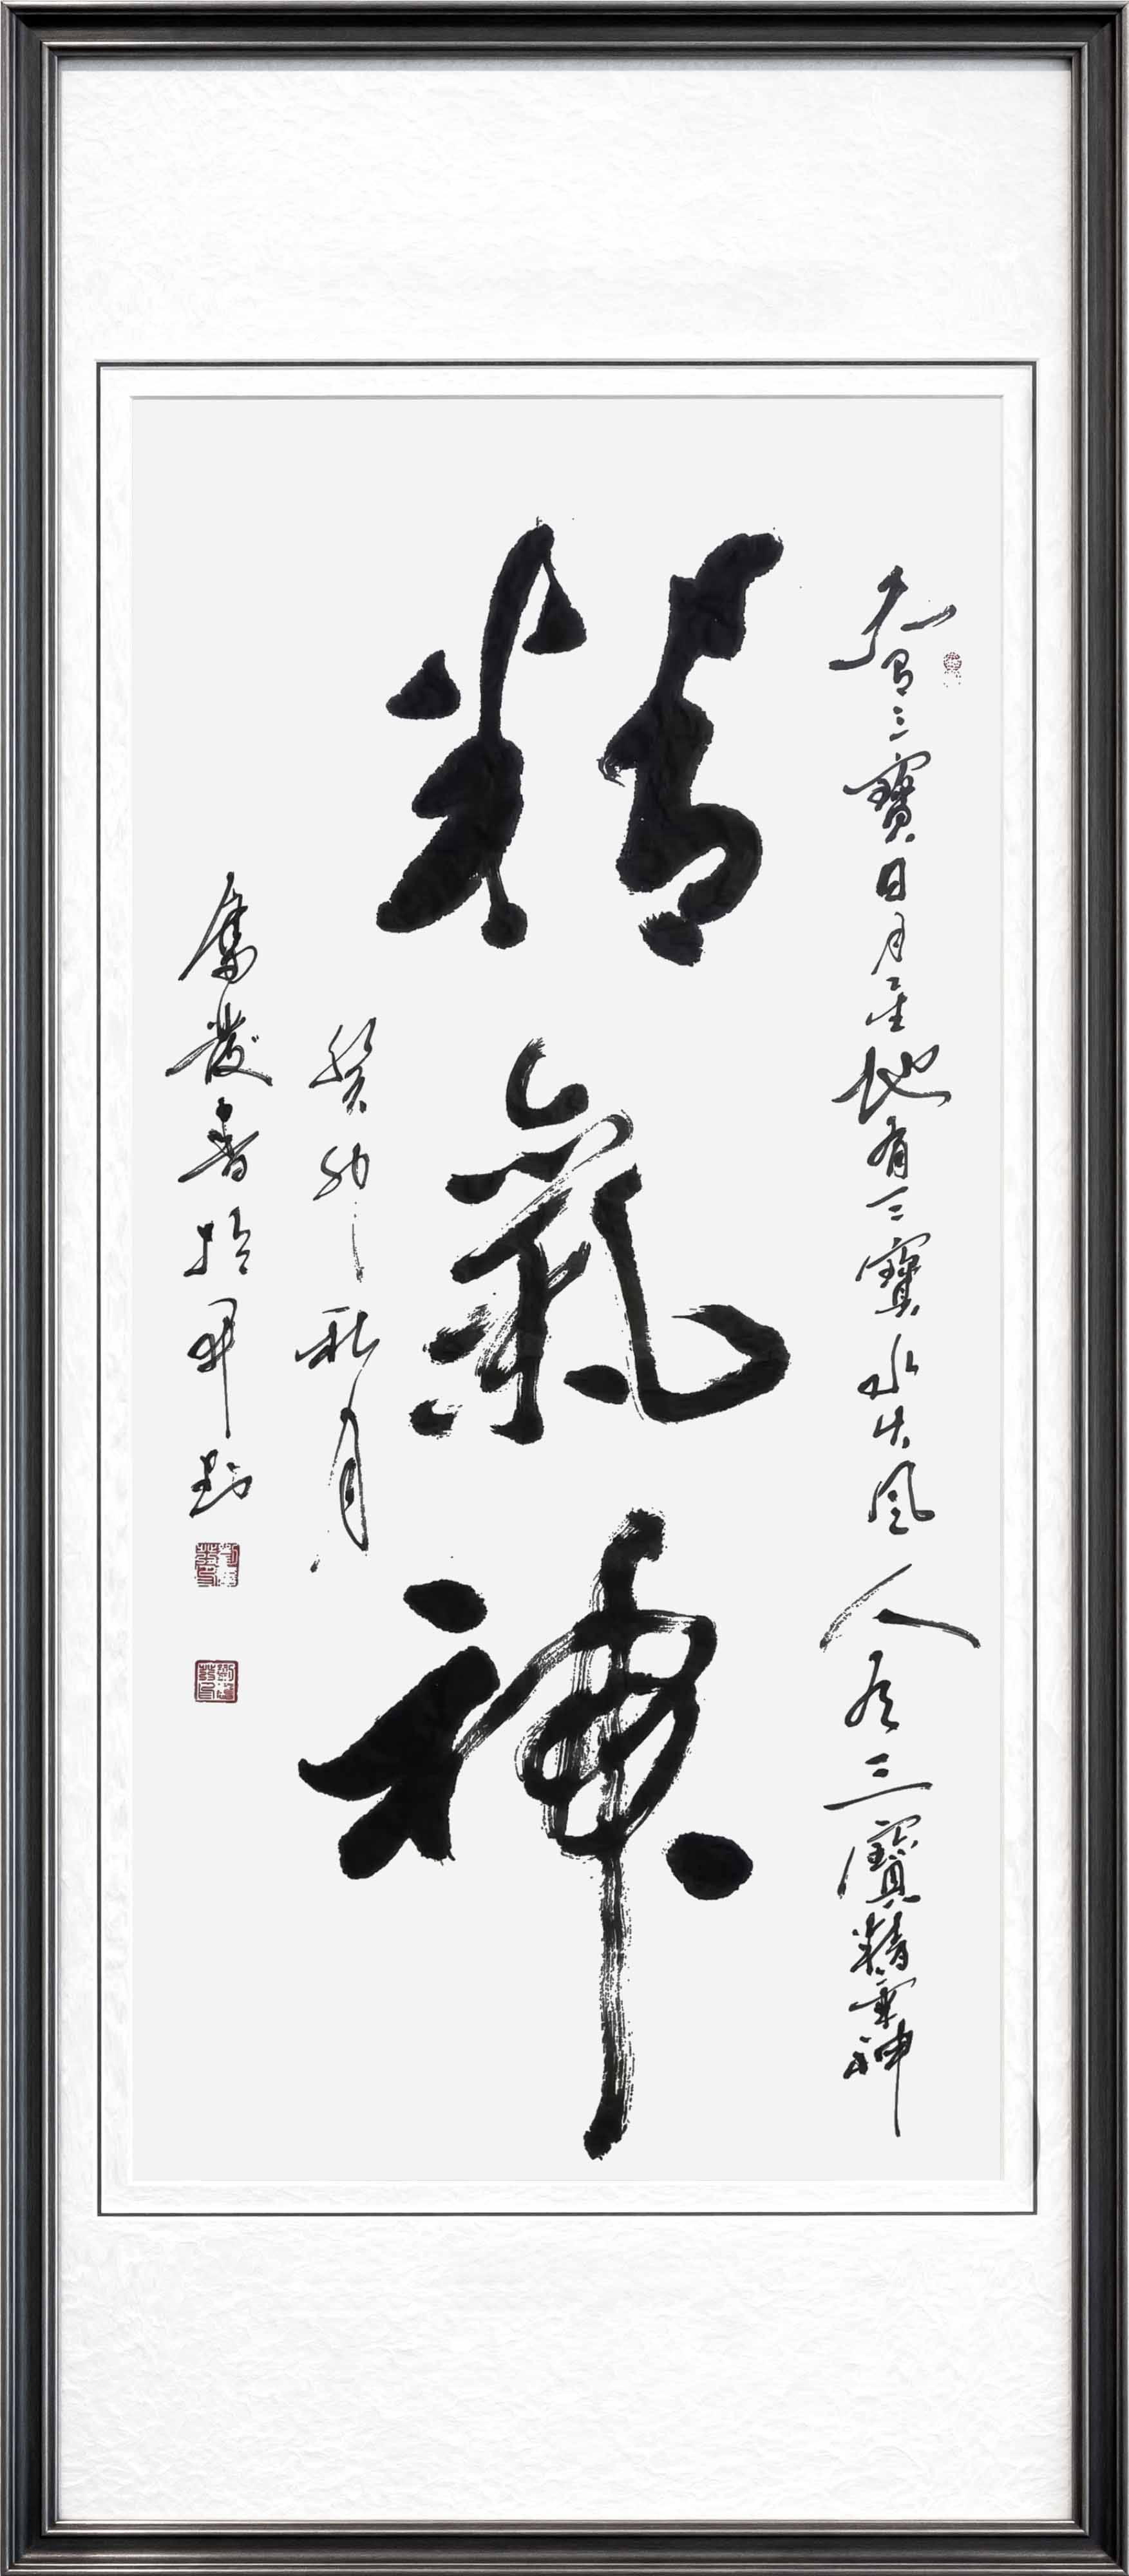 天有三寶日月星地有三寶水火風人有三寶精氣神
精氣神
癸卯秋月
奮發書於